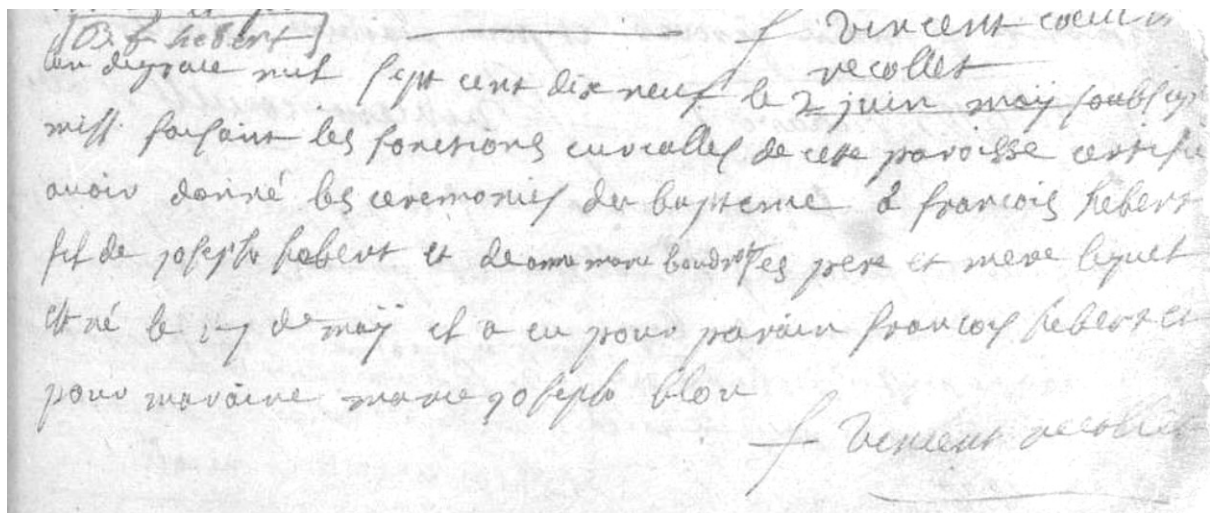 [B. f hebert] f Vincent
recollet
lan de grace mil sept cent dix neuf le 2 juin moÿ soubsigné
miss. faisant les fonctions curialles de cette paroisse certifie
avoir donné les ceremonies du bapteme a francois hebert
fil de joseph hebert et de anne marie boudrot ses pere et mere lequel
est né le de maÿ et a eu pour parain francois hebert et
pour maraine marie joseph
f vincent recollet